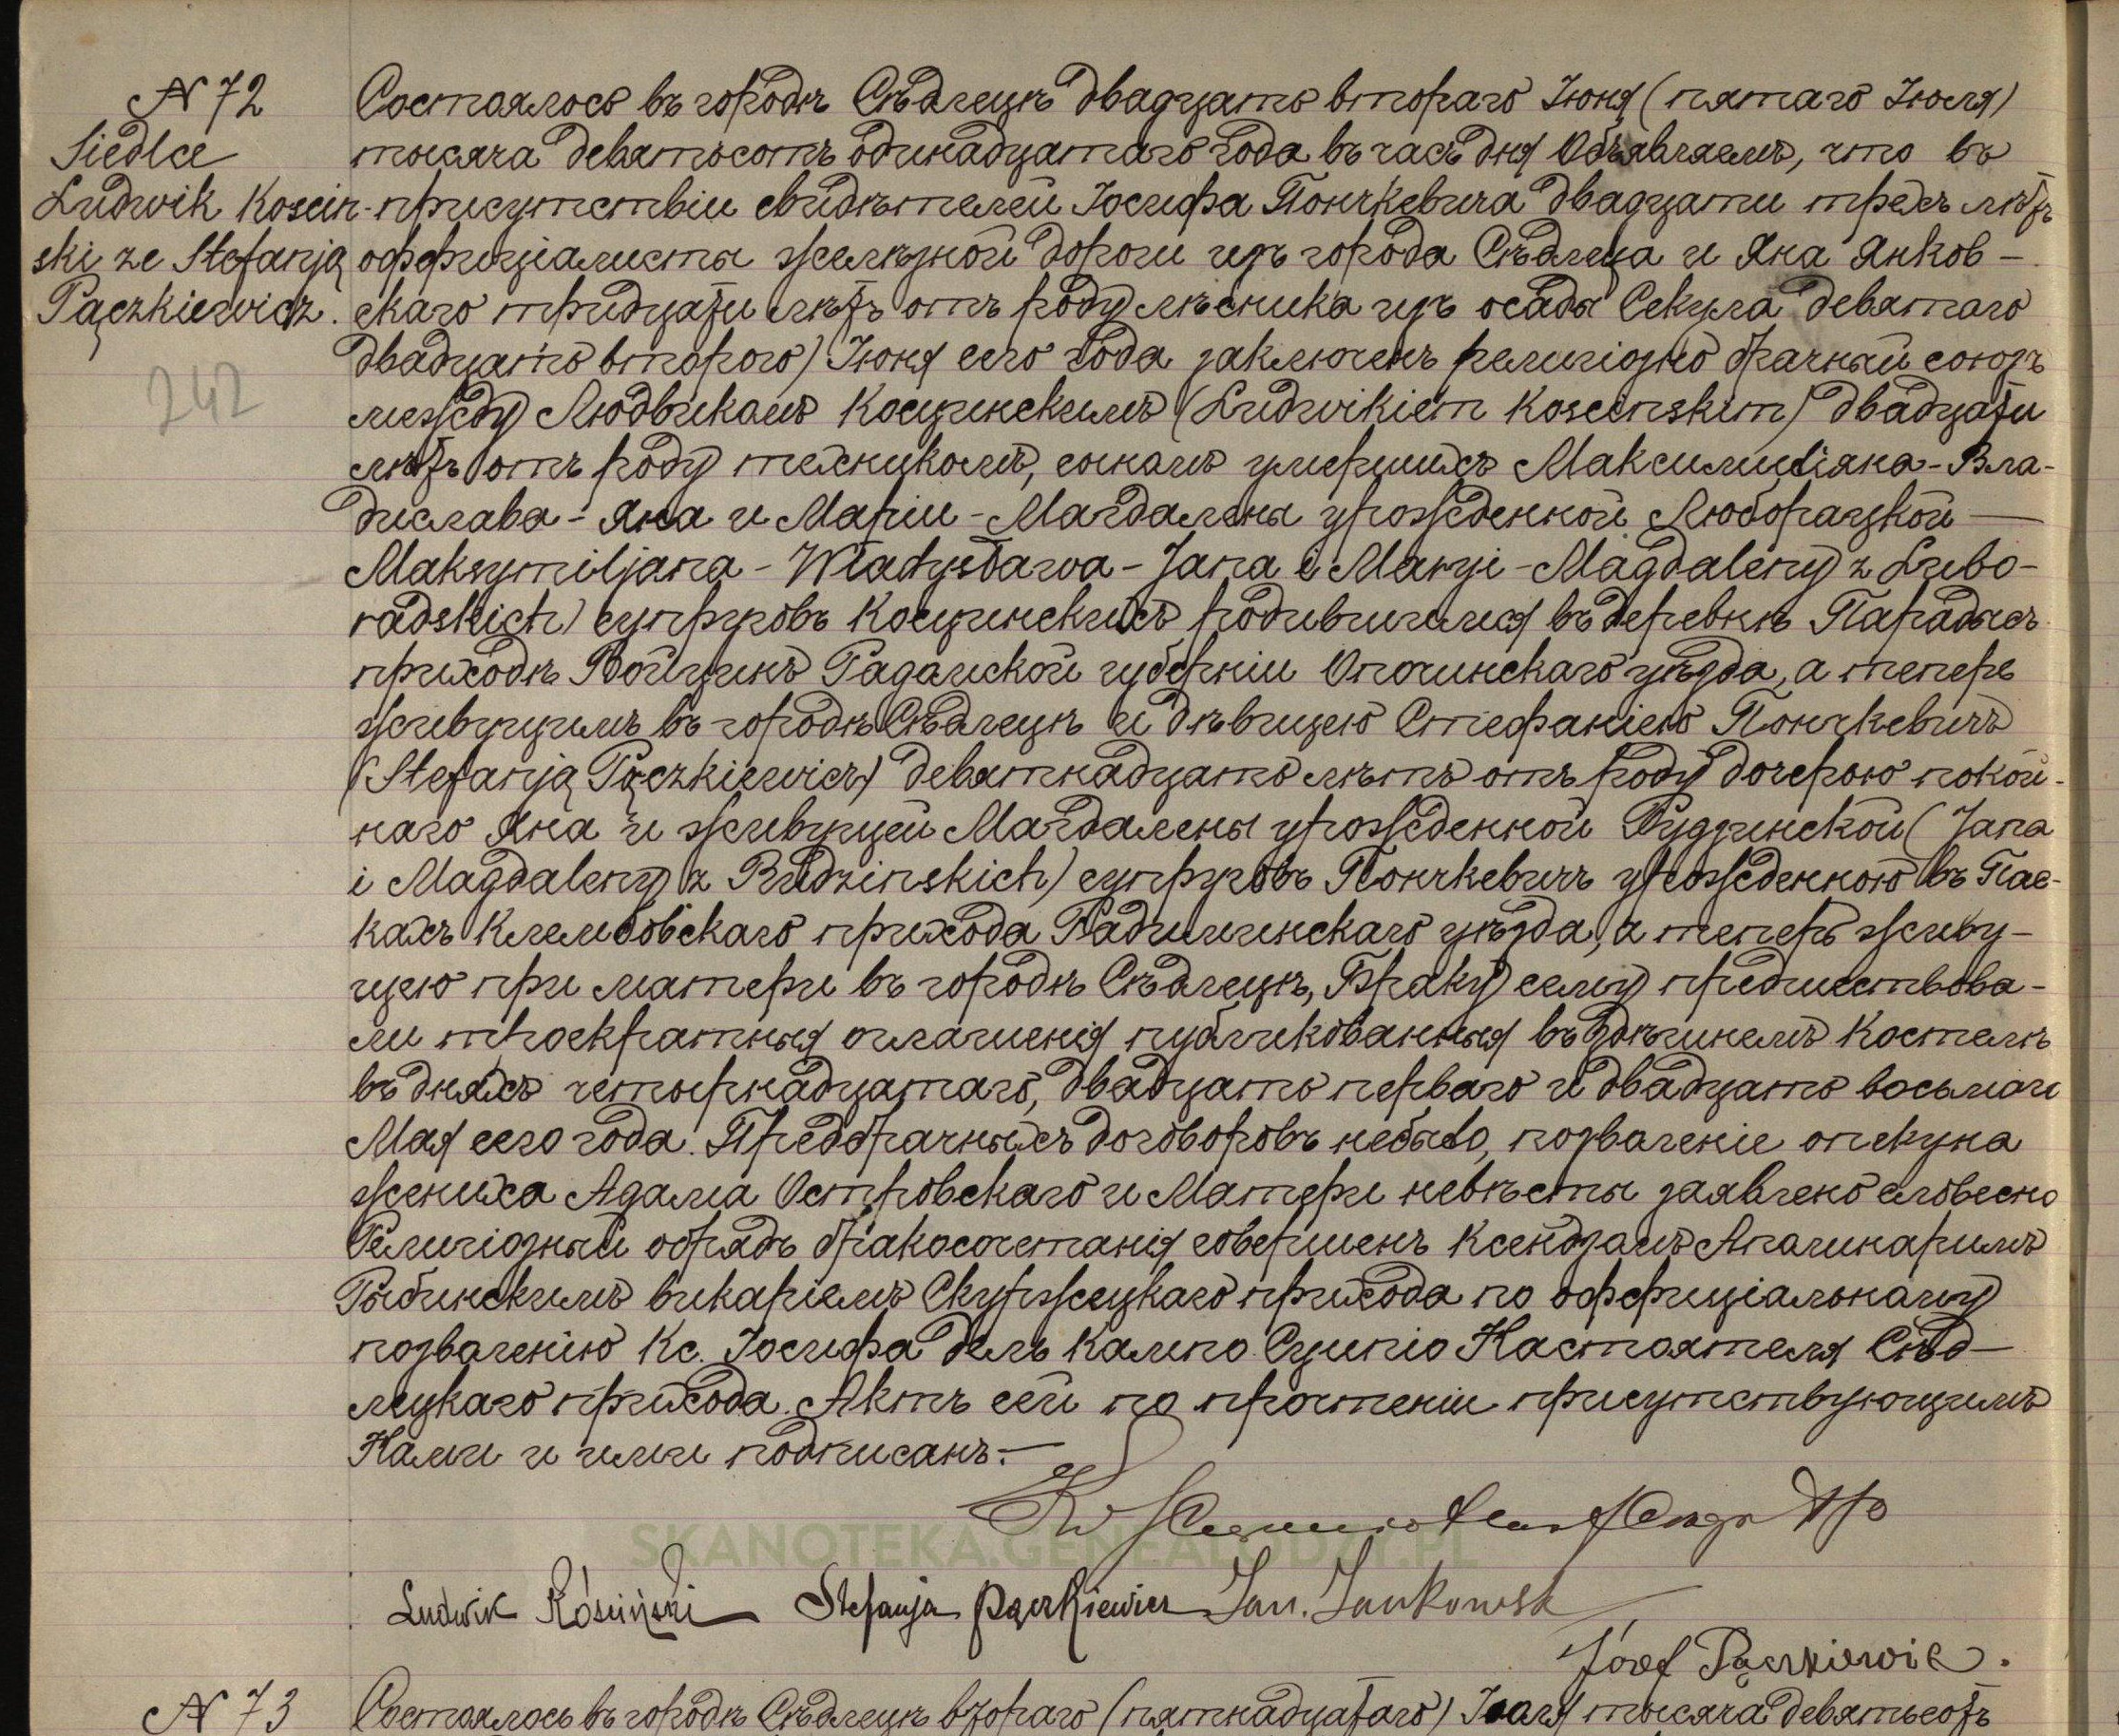 N 72
Siedlce
Ludwik Kosciń-
ski ze Stefanją
Pączkiewicz.
242
Состоялось въ городѣ Сѣдлецѣ двадцать втораго Іюня (пятаго Іюля)
тысяча девятьсотъ одинадцатаго года въ часъ дня Объявляемъ, что въ
присутствіи свидѣтелей Іосифа Пончкевича двадцати трехъ лѣтъ
оффиціалисты желѣзной дороги изъ города Сѣдлеца и Яна Янков-
скаго тридцати лѣтъ отъ роду лѣсника изъ осады Секула девятаго
двадцать второго) Іюня сего года заключенъ религіозно брачный союзъ
между Людвикомъ Косцинскимъ (Ludwikiem Koscinskim) двадцати
лѣтъ отъ роду техникомъ, сыномъ умершихъ Максимиліана-Вла-
дислава-Яна и Маріи-Магдалены урожденной Люборацкой —
Maksymiljana - Władysława - Jana i Maryi - Magdaleny z Lubo-
radskich) супруговъ Косцинскихъ родившимся въ деревнѣ Парадысъ
приходѣ Войцинъ Радомской губерніи Опочинскаго уѣзда, а теперь
живущимъ въ городѣ Сѣдлецѣ и дѣвицею Стефаніею Пончкевичъ
(Stefanją Pączkiewicz) девятнадцать лѣтъ отъ роду дочерью покой-
наго Яна и живущей Магдалены урожденной Рудзинской (Jana
i Magdaleny z Rudzinskich) супруговъ Пончкевичъ урожденною въ Пас-
кахъ Клембовскаго прихода Радиминскаго уѣзда, а теперь живу-
щею при матери въ городѣ Сѣдлецѣ, Браку сему предшествова-
ли троекратныя оглашенія публикованныя въ здѣшнемъ Костелѣ
въ дняхъ четырнадцатаго, двадцать перваго и двадцать восьмаго
Мая сего года. Предбрачныхъ договоровъ небыло, позволеніе опекуна
жениха Адама Островскаго и Матери невѣсты заявлено словесно
Религіозный обрядъ бракосочетанія совершенъ Ксендзомъ Аполинаримъ
Рыбинскимъ викаріемъ Скуржецкаго прихода по оффиціальному
позволенію Кс. Іосифа дель Кампо Сципіо Настоятеля Сѣд-
лецкаго прихода. Актъ сей по прочтеніи присутствующимъ
Нами и ими подписанъ.—
SKANOTEKA.GENEALODZY.PL
Ludwik Kościński Stefanja Pączkiewicz Jan. Jankowski
Józef Pączkiewicz.
N 73
Состоялось въ городѣ Сѣдлецѣ втораго (пятнадцатаго) Іюля тысяча девятьсотъ